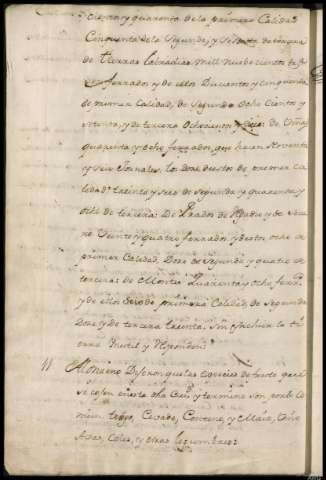 ciento y quarenta de la primera Calidad
Cinquenta de la Segunda, y
de tierras Labradias mill nuebecientos
ferrados y de ellos Ducientos y cinquenta
de primera Calidad, de Segunda ocho Cientos y
y de tercera de Viñas
quarenta y ocho ferrados, que hacen Noventa
y Seis Jornales, los doze de estos de primera ca
lidad treinta y seis de segunda y quarenta y
ocho de tercera: De Prados de Regadio y de Seca
no Veinte y quatro ferrados y de estos ocho de
primera Calidad, Doze de Segunda y quatro de
tercera: de Montes Quarenta y ocho ferra.
y de ellos Seis de primera Calidad, de Segunda
Doze y de tercera treinta, sin Yncluir la ti
erra Ynutil y
11 Al onzeno Dijeron, que las especies de fruto que
se cojen en esta dha y termino son por lo
comun, trigo, Cevada, Centeno, y Maiz, Vino
Abas, Coles, y otras Legumbres